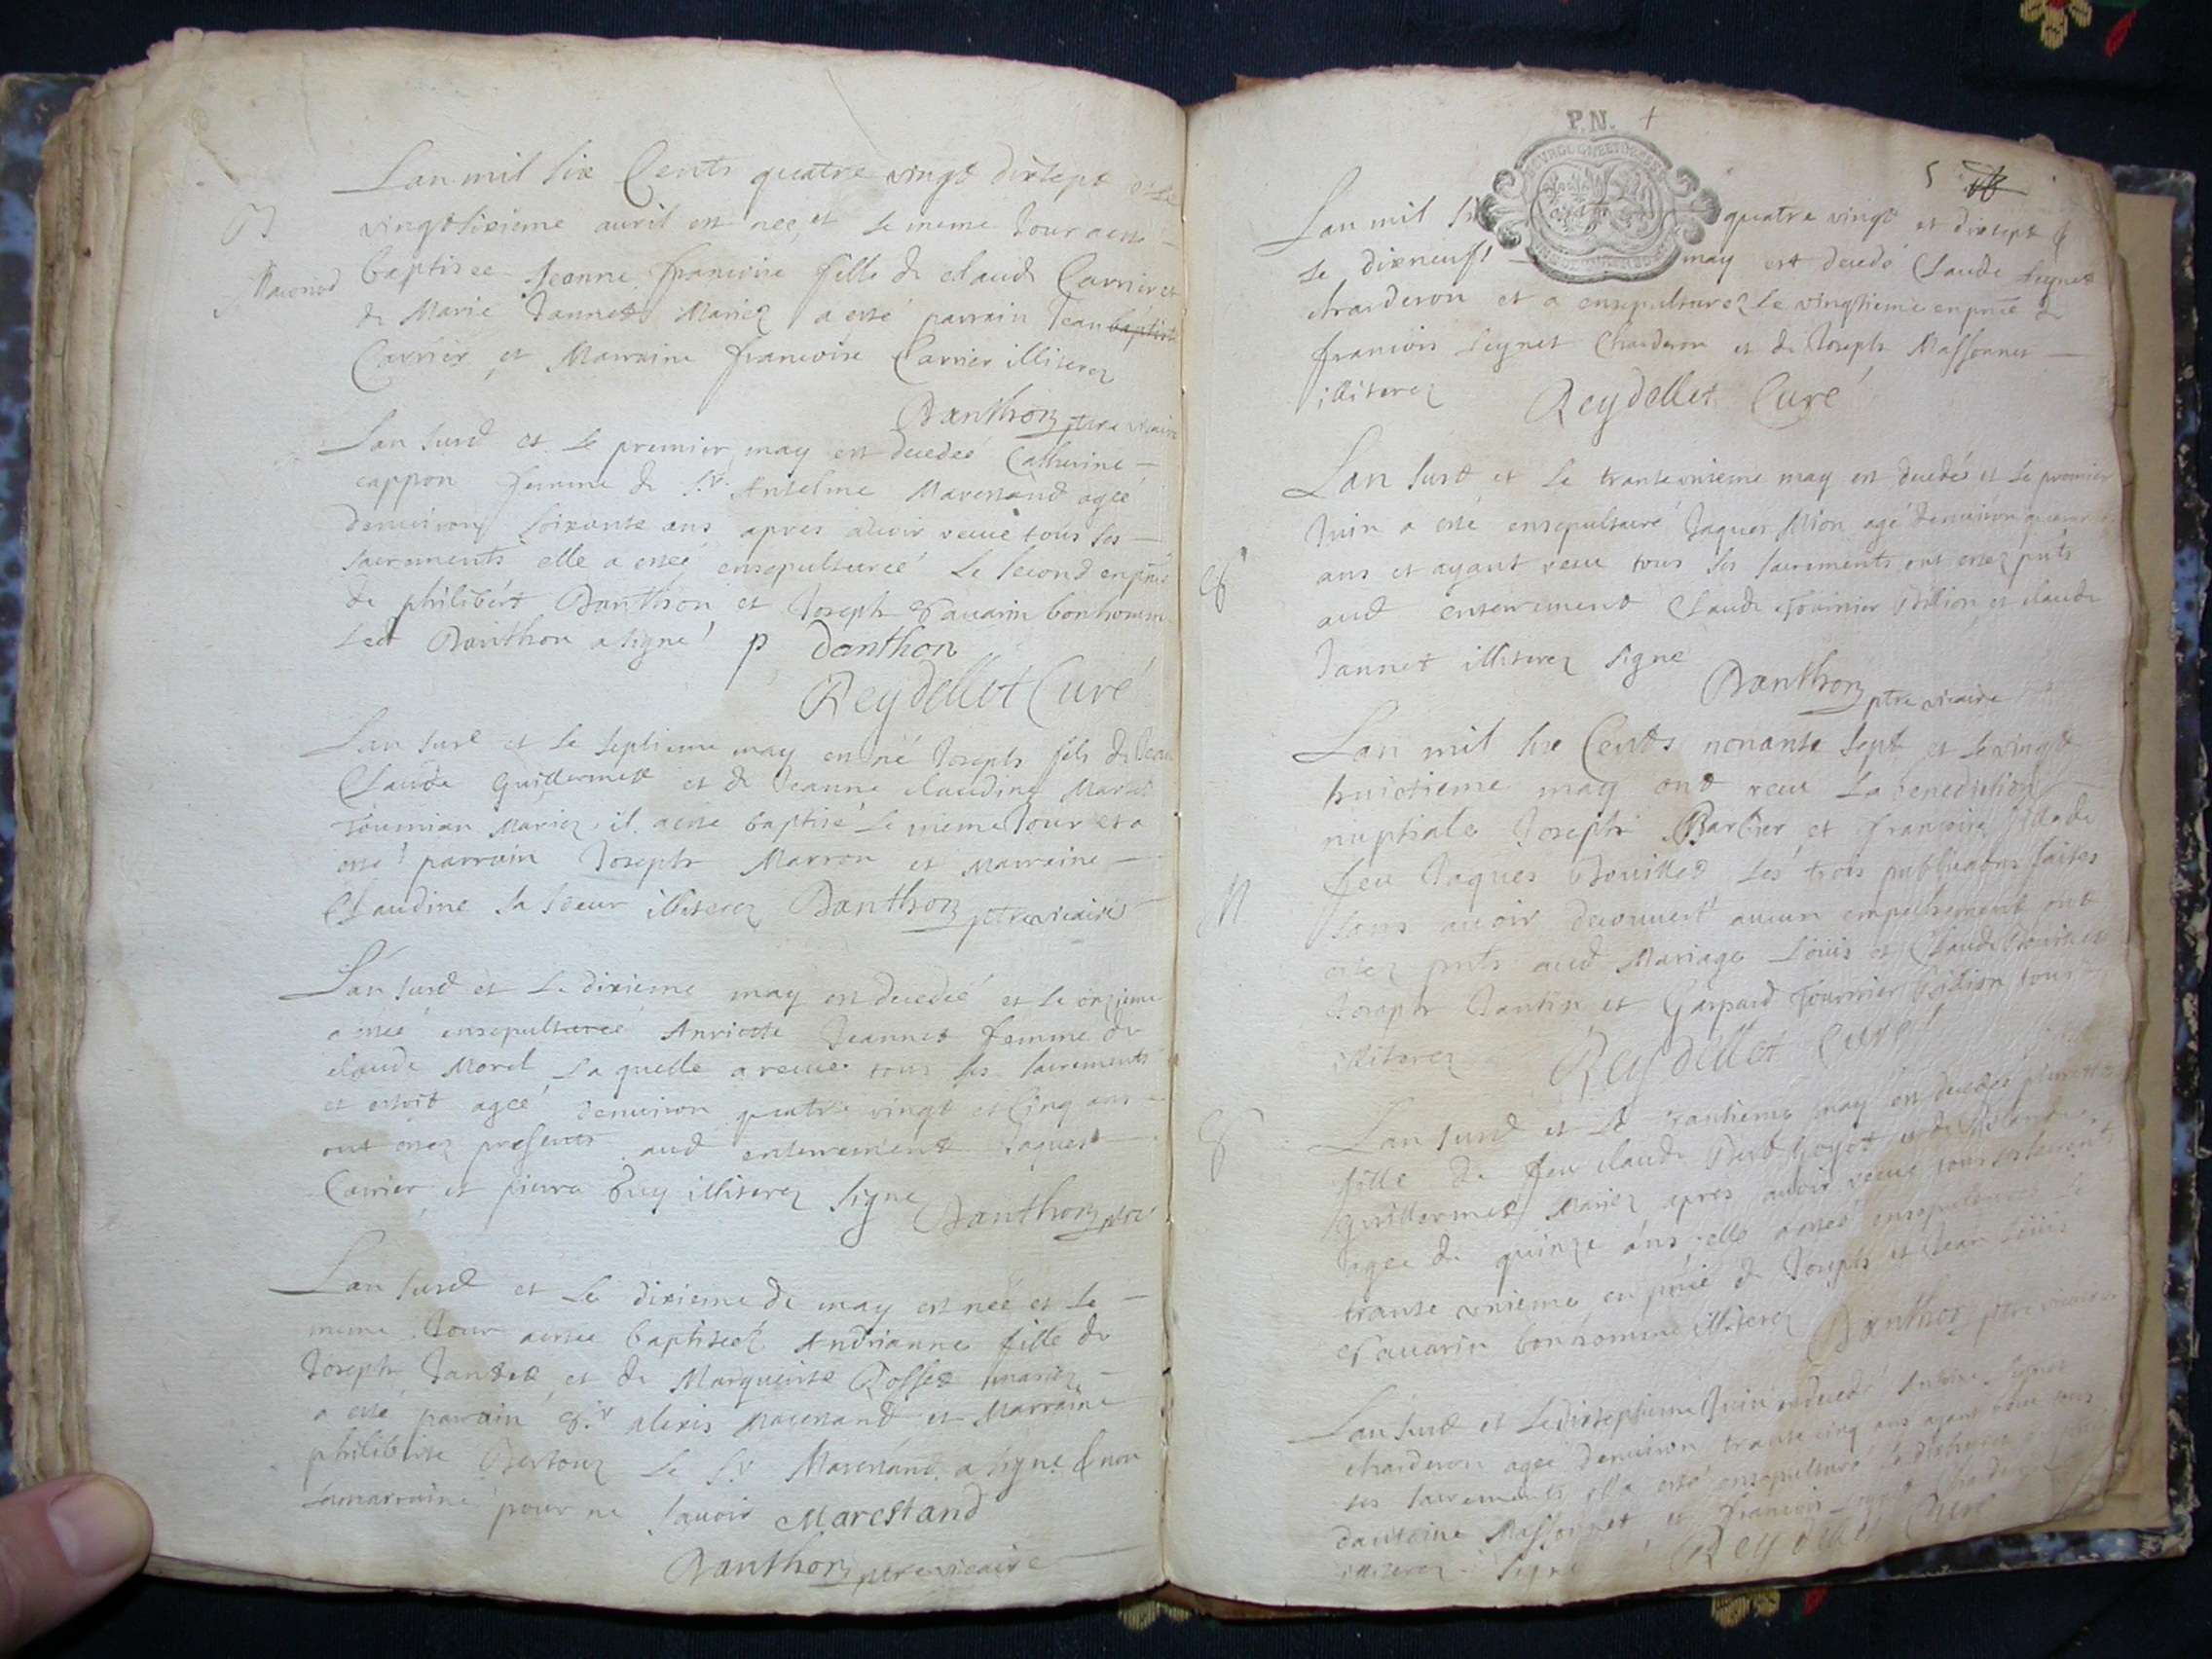 Lan mil six Cents quatre vingt dixsept et le
B
vingtsixieme auril est neé, et le meme Jour a esté
baptisee Jeanne francoise fille de claude Carrier et
de Marie Jannet Mariez a esté parrain Jean baptiste
Carrier, et Marraine francoise Carrier illiterez
Danthon ptre vicaire
Lan susd et le premier may est decedeé Catherine
cappon femme de Sr. Anselme Marestand ageé
denuiron soixante ans apres auoir receue tous les
sacrements elle a esteé ensepultureé le second en pnce
de philibert Danthon et Joseph Sauarin bonhomme
led Danthon a signé P danthon
Reydellet Curé
Lan susd et le septieme may est né Joseph fils de Jean
Claude Guillermet et de Jeanne claudine
Mariez, il a esté baptisé le meme Jour et a
esté parrain Joseph Marron et Marraine
Claudine sa soeur illiterez Danthon ptre vicaire
Lan susd et le dixieme may est decedeé et le onzieme
a esteé ensepultureé Anrieste Jeannet femme de
claude Morel laquelle a receue tous les sacrements
et estoit ageé denuiron quatre vingt et cinq ans
ont estez presents aud enterrement Jaques
Carrier et pierre Buy illiterez signe
Danthon ptre
Lan susd et le dixieme de may est neé et le
meme Jour a esteé baptiseé Andrianne fille de
Joseph Jantet et de Marguerite Rosset mariez
a esté parrain Sr. alexis Marestand et Marraine
philiberte Bertour le Sr Marestand a signe & non
la marraine pour ne sauoir Marestand
Danthon ptre vicaire
P.N.
5
Lan mil quatre vingt et dixsept &
le dixneufs may est decedé Claude Seignet
charderon et a ensepulturez le vingtieme en pnce de
francois Seignet Charderon et de Joseph Massonnet
illiterez Reydellet Curé
Lan susd et le trante onieme may est decedés et le premier
Juin a esté ensepulturé Jaques Mion agé denuiron
ans et ayant receu tous les sacrements ont estez pnts
S
aud enterrement Claude Fournier Billion, et claude
Jannet illiterez signe
Danthon ptre vicaire
Lan mil six Cents nonante sept et le vingt
huictieme may ont receu la benediction
nuptiale Joseph Barbier et francoise fille de
feu Jaques Bouillet les trois publications faites
M
sans auoir decouuert aucun empechement ont
estez pnts aud Mariage Louis et Claude Bouillet
Joseph Jantin et Gaspard Fournier Billion tous
illiterez Reydellet Curé
S
Lan susd et le trantieme may est decedeé
fille de feu claude
guillermet Mariez apres auoir receue tous
agee de quinze ans, elle a esteé ensepultureé le
trante onieme en pnce de Joseph et Jean Louis
Sauarin bonhomme illiterez Danthon ptre vicaire
Lan susd et le dixseptieme Juin est decedé
charderon agee denuiron trante cinq ans ayant receu tous
les sacrements ella esté ensepulturé
dantoine Massonnet et francois
illiterez signe Reydellet Curé